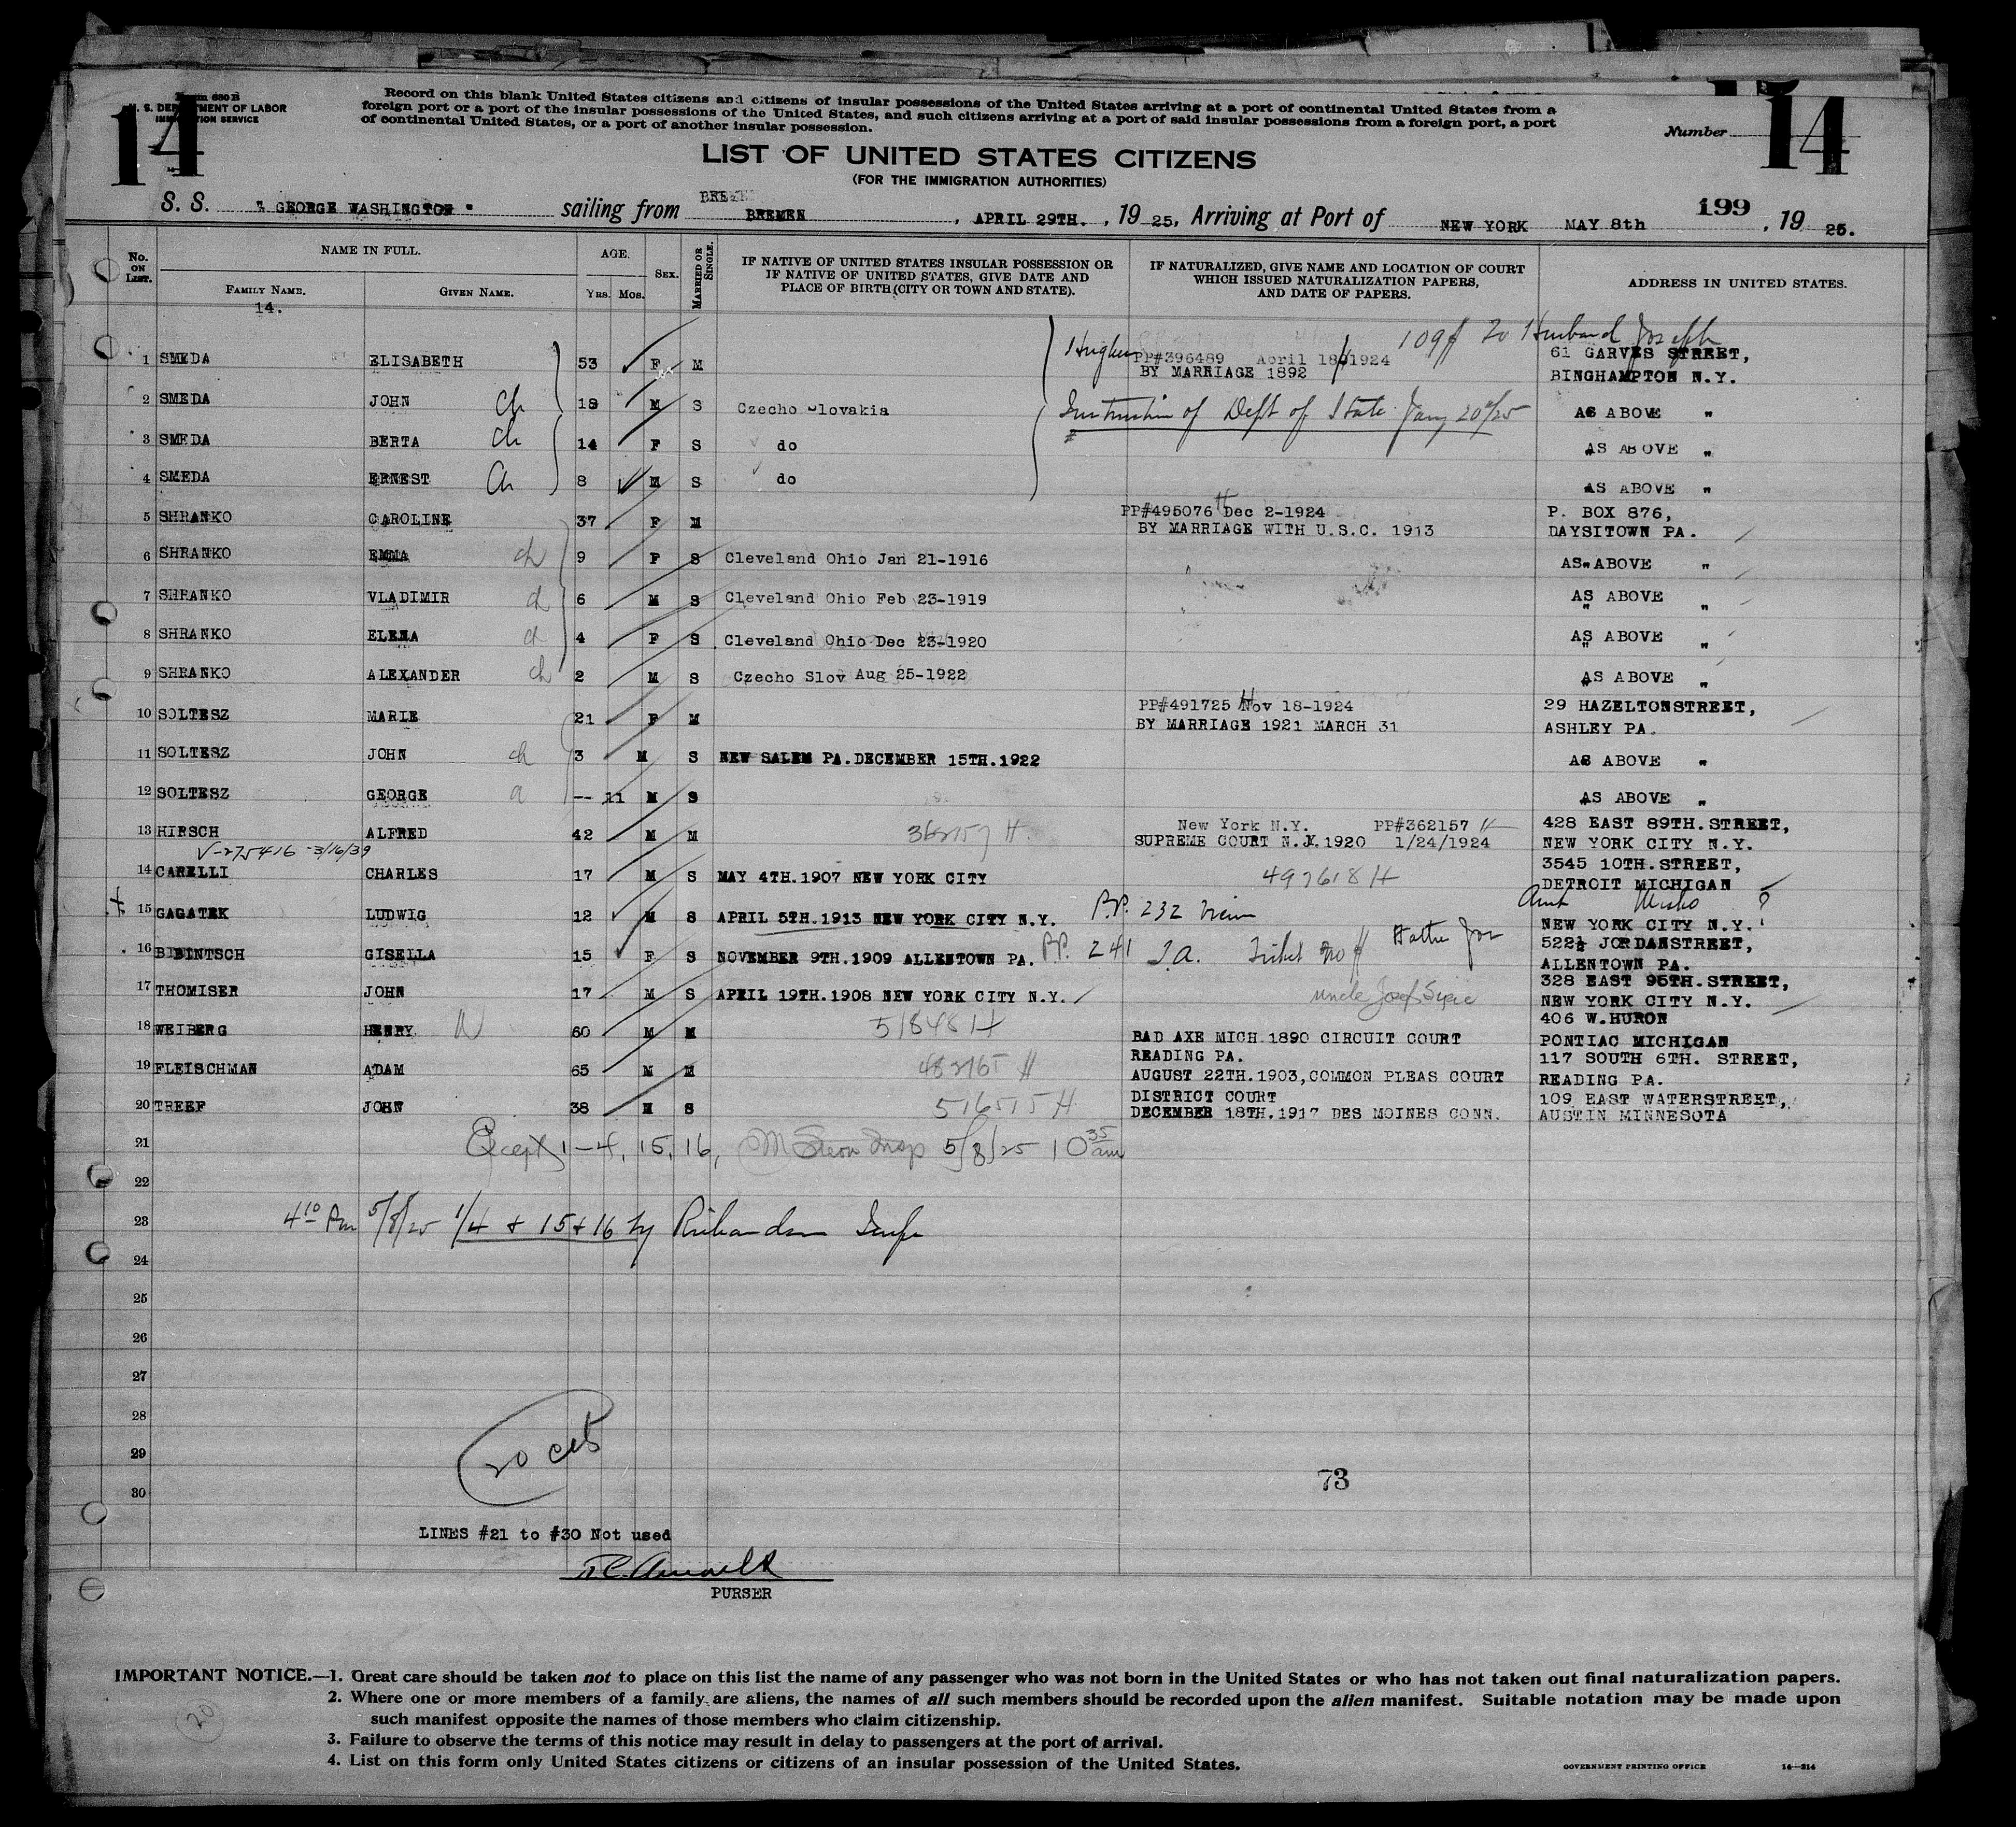 Form 630 B
U. S. DEPARTMENT OF LABOR
IMMIGRATION SERVICE
14
Record on this blank United States citizens and citizens of insular possessions of the United States arriving at a port of continental United States from a
foreign port or a port of the insular possessions of the United States, and such citizens arriving at a port of said insular possessions from a foreign port, a port
of continental United States, or a port of another insular possession.
Number 14
LIST OF UNITED STATES CITIZENS
(FOR THE IMMIGRATION AUTHORITIES)
199
S. S. " GEORGE WASHINGTON " sailing from BREMEN, APRIL 29TH., 19 25, Arriving at Port of NEW YORK MAY 8th, 19 25.
No. ON LIST. NAME IN FULL. AGE. SEX. MARRIED OR SINGLE. IF NATIVE OF UNITED STATES INSULAR POSSESSION OR IF NATIVE OF UNITED STATES, GIVE DATE AND PLACE OF BIRTH (CITY OR TOWN AND STATE). IF NATURALIZED, GIVE NAME AND LOCATION OF COURT WHICH ISSUED NATURALIZATION PAPERS, AND DATE OF PAPERS. ADDRESS IN UNITED STATES.
FAMILY NAME. GIVEN NAME. YRS. MOS.
14.
109 To Husband Joseph
1 SMEDA ELISABETH 53 F M PP#396489 April 18 1924 61 GARVES STREET,
BY MARRIAGE 1892 BINGHAMPTON N.Y.
2 SMEDA JOHN ch 18 M S Czecho Slovakia Instruction of Dept of State Jany 20/25 AS ABOVE "
3 SMEDA BERTA ch 14 F S do AS ABOVE "
4 SMEDA ERNEST ch 8 M S do AS ABOVE "
5 SHRANKO CAROLINE 37 F M PP#495076 Dec 2-1924 P. BOX 876,
BY MARRIAGE WITH U.S.C. 1913 DAYSITOWN PA.
6 SHRANKO EMMA ch 9 F S Cleveland Ohio Jan 21-1916 AS ABOVE "
7 SHRANKO VLADIMIR ch 6 M S Cleveland Ohio Feb 23-1919 AS ABOVE "
8 SHRANKO ELENA ch 4 F S Cleveland Ohio Dec 23-1920 AS ABOVE "
9 SHRANKO ALEXANDER ch 2 M S Czecho Slov Aug 25-1922 AS ABOVE "
10 SOLTESZ MARIE 21 F M PP#491725 Nov 18-1924 29 HAZELTONSTREET,
BY MARRIAGE 1921 MARCH 31 ASHLEY PA.
11 SOLTESZ JOHN ch 3 M S NEW SALEM PA. DECEMBER 15TH. 1922 AS ABOVE "
12 SOLTESZ GEORGE -- 11 M S AS ABOVE "
13 HIRSCH ALFRED 42 M M 362157 H New York N.Y. PP#362157 H 428 EAST 89TH. STREET,
V-275416 -3/16/39 SUPREME COURT N.Y. 1920 1/24/1924 NEW YORK CITY N.Y.
14 CARELLI CHARLES 17 M S MAY 4TH. 1907 NEW YORK CITY 497618 H 3545 10TH. STREET,
DETROIT MICHIGAN
Aunt
15 GAGATEK LUDWIG 12 M S APRIL 5TH. 1913 NEW YORK CITY N.Y. P.P. 232 NEW YORK CITY N.Y.
16 BIBINTSCH GISELLA 15 F S NOVEMBER 9TH. 1909 ALLENTOWN PA. P.P. 241 Ticket 522½ JORDANSTREET,
ALLENTOWN PA.
17 THOMISER JOHN 17 M S APRIL 19TH. 1908 NEW YORK CITY N.Y. uncle Josef 328 EAST 95TH. STREET,
NEW YORK CITY N.Y.
18 WEIBERG HENRY W 60 M M 518481 H BAD AXE MICH. 1890 CIRCUIT COURT 406 W. HURON
PONTIAC MICHIGAN
19 FLEISCHMAN ADAM 65 M M READING PA. 117 SOUTH 6TH. STREET,
AUGUST 22TH. 1903, COMMON PLEAS COURT READING PA.
20 TREEF JOHN 38 M S 516515 H DISTRICT COURT 109 EAST WATERSTREET,
DECEMBER 18TH. 1917 DES MOINES CONN. AUSTIN MINNESOTA
21 Except 1-4, 15, 16, Insp 5/8/25 10 35 am
22
23 4 10 Pm 5/8/25 1/4 + 15+16 by Richardson Insp
24
25
26
27
28
29
30
20 cit
73
LINES #21 to #30 Not used
PURSER
IMPORTANT NOTICE.—1. Great care should be taken not to place on this list the name of any passenger who was not born in the United States or who has not taken out final naturalization papers.
2. Where one or more members of a family are aliens, the names of all such members should be recorded upon the alien manifest. Suitable notation may be made upon
such manifest opposite the names of those members who claim citizenship.
3. Failure to observe the terms of this notice may result in delay to passengers at the port of arrival.
4. List on this form only United States citizens or citizens of an insular possession of the United States.
20
GOVERNMENT PRINTING OFFICE 14—314